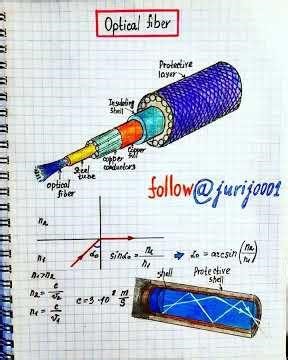 Optical fiber
Protective
layer
Insulating
shell
Copper
full
copper
conductors
Steel
tube
optical
fiber
follow@jurij0001
n₂
n₁
α₀
sinα₀ = n₂/n₁ ⇒ α₀ = arcsin(n₂/n₁)
n₁>n₂
n₂ = c/v₂
n₁ = c/v₁
c = 3·10⁸ m/s
shell
Protective
shell